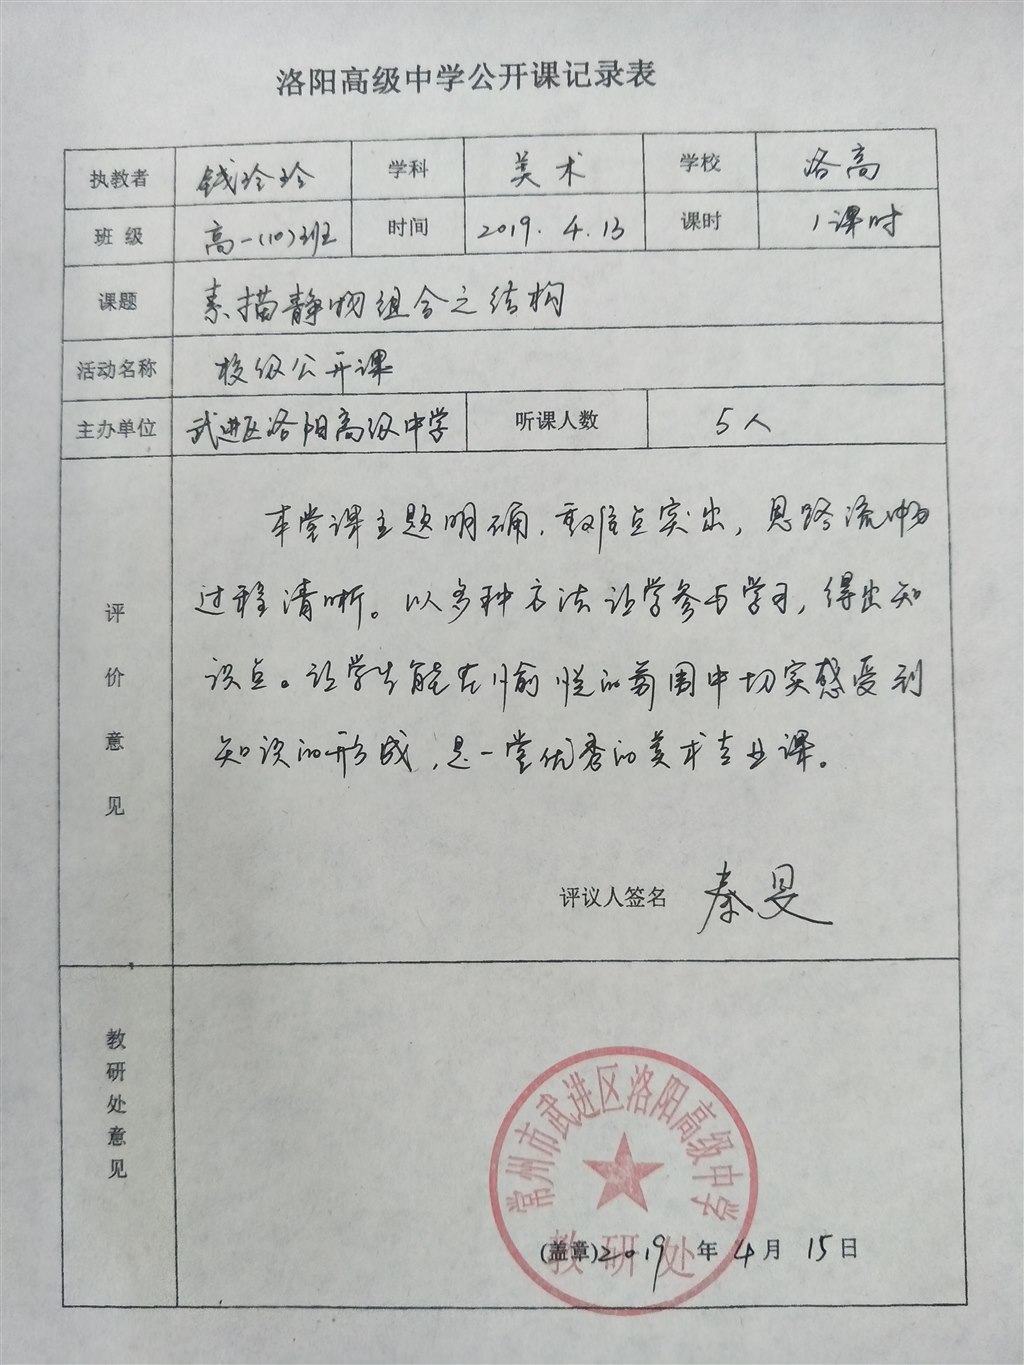 洛阳高级中学公开课记录表
执教者 钱玲玲 学科 美术 学校 洛高
班级 高一(10)班 时间 2019.4.13 课时 1课时
课题 素描静物组合之结构
活动名称 校级公开课
主办单位 武进区洛阳高级中学 听课人数 5人
评价意见
本堂课主题明确,重难点突出,思路流畅
过程清晰。以多种方法让学参与学习,得出知
识点。让学生能在愉悦的氛围中切实感受到
知识的形成,是一堂优秀的美术专业课。
评议人签名 秦旻
教研处意见
常州市武进区洛阳高级中学
教研处
(盖章)2019年4月15日